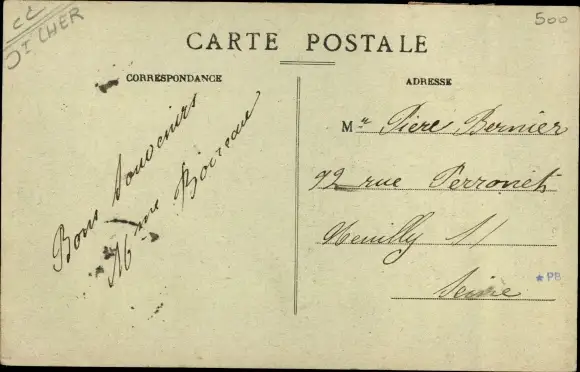 CC
Jt CHER
500
CARTE POSTALE
CORRESPONDANCE
ADRESSE
Bons Souvenirs
Mme Boireau
Mr Piere Bernier
92 rue Perronet
Neuilly S/
Seine
*PB